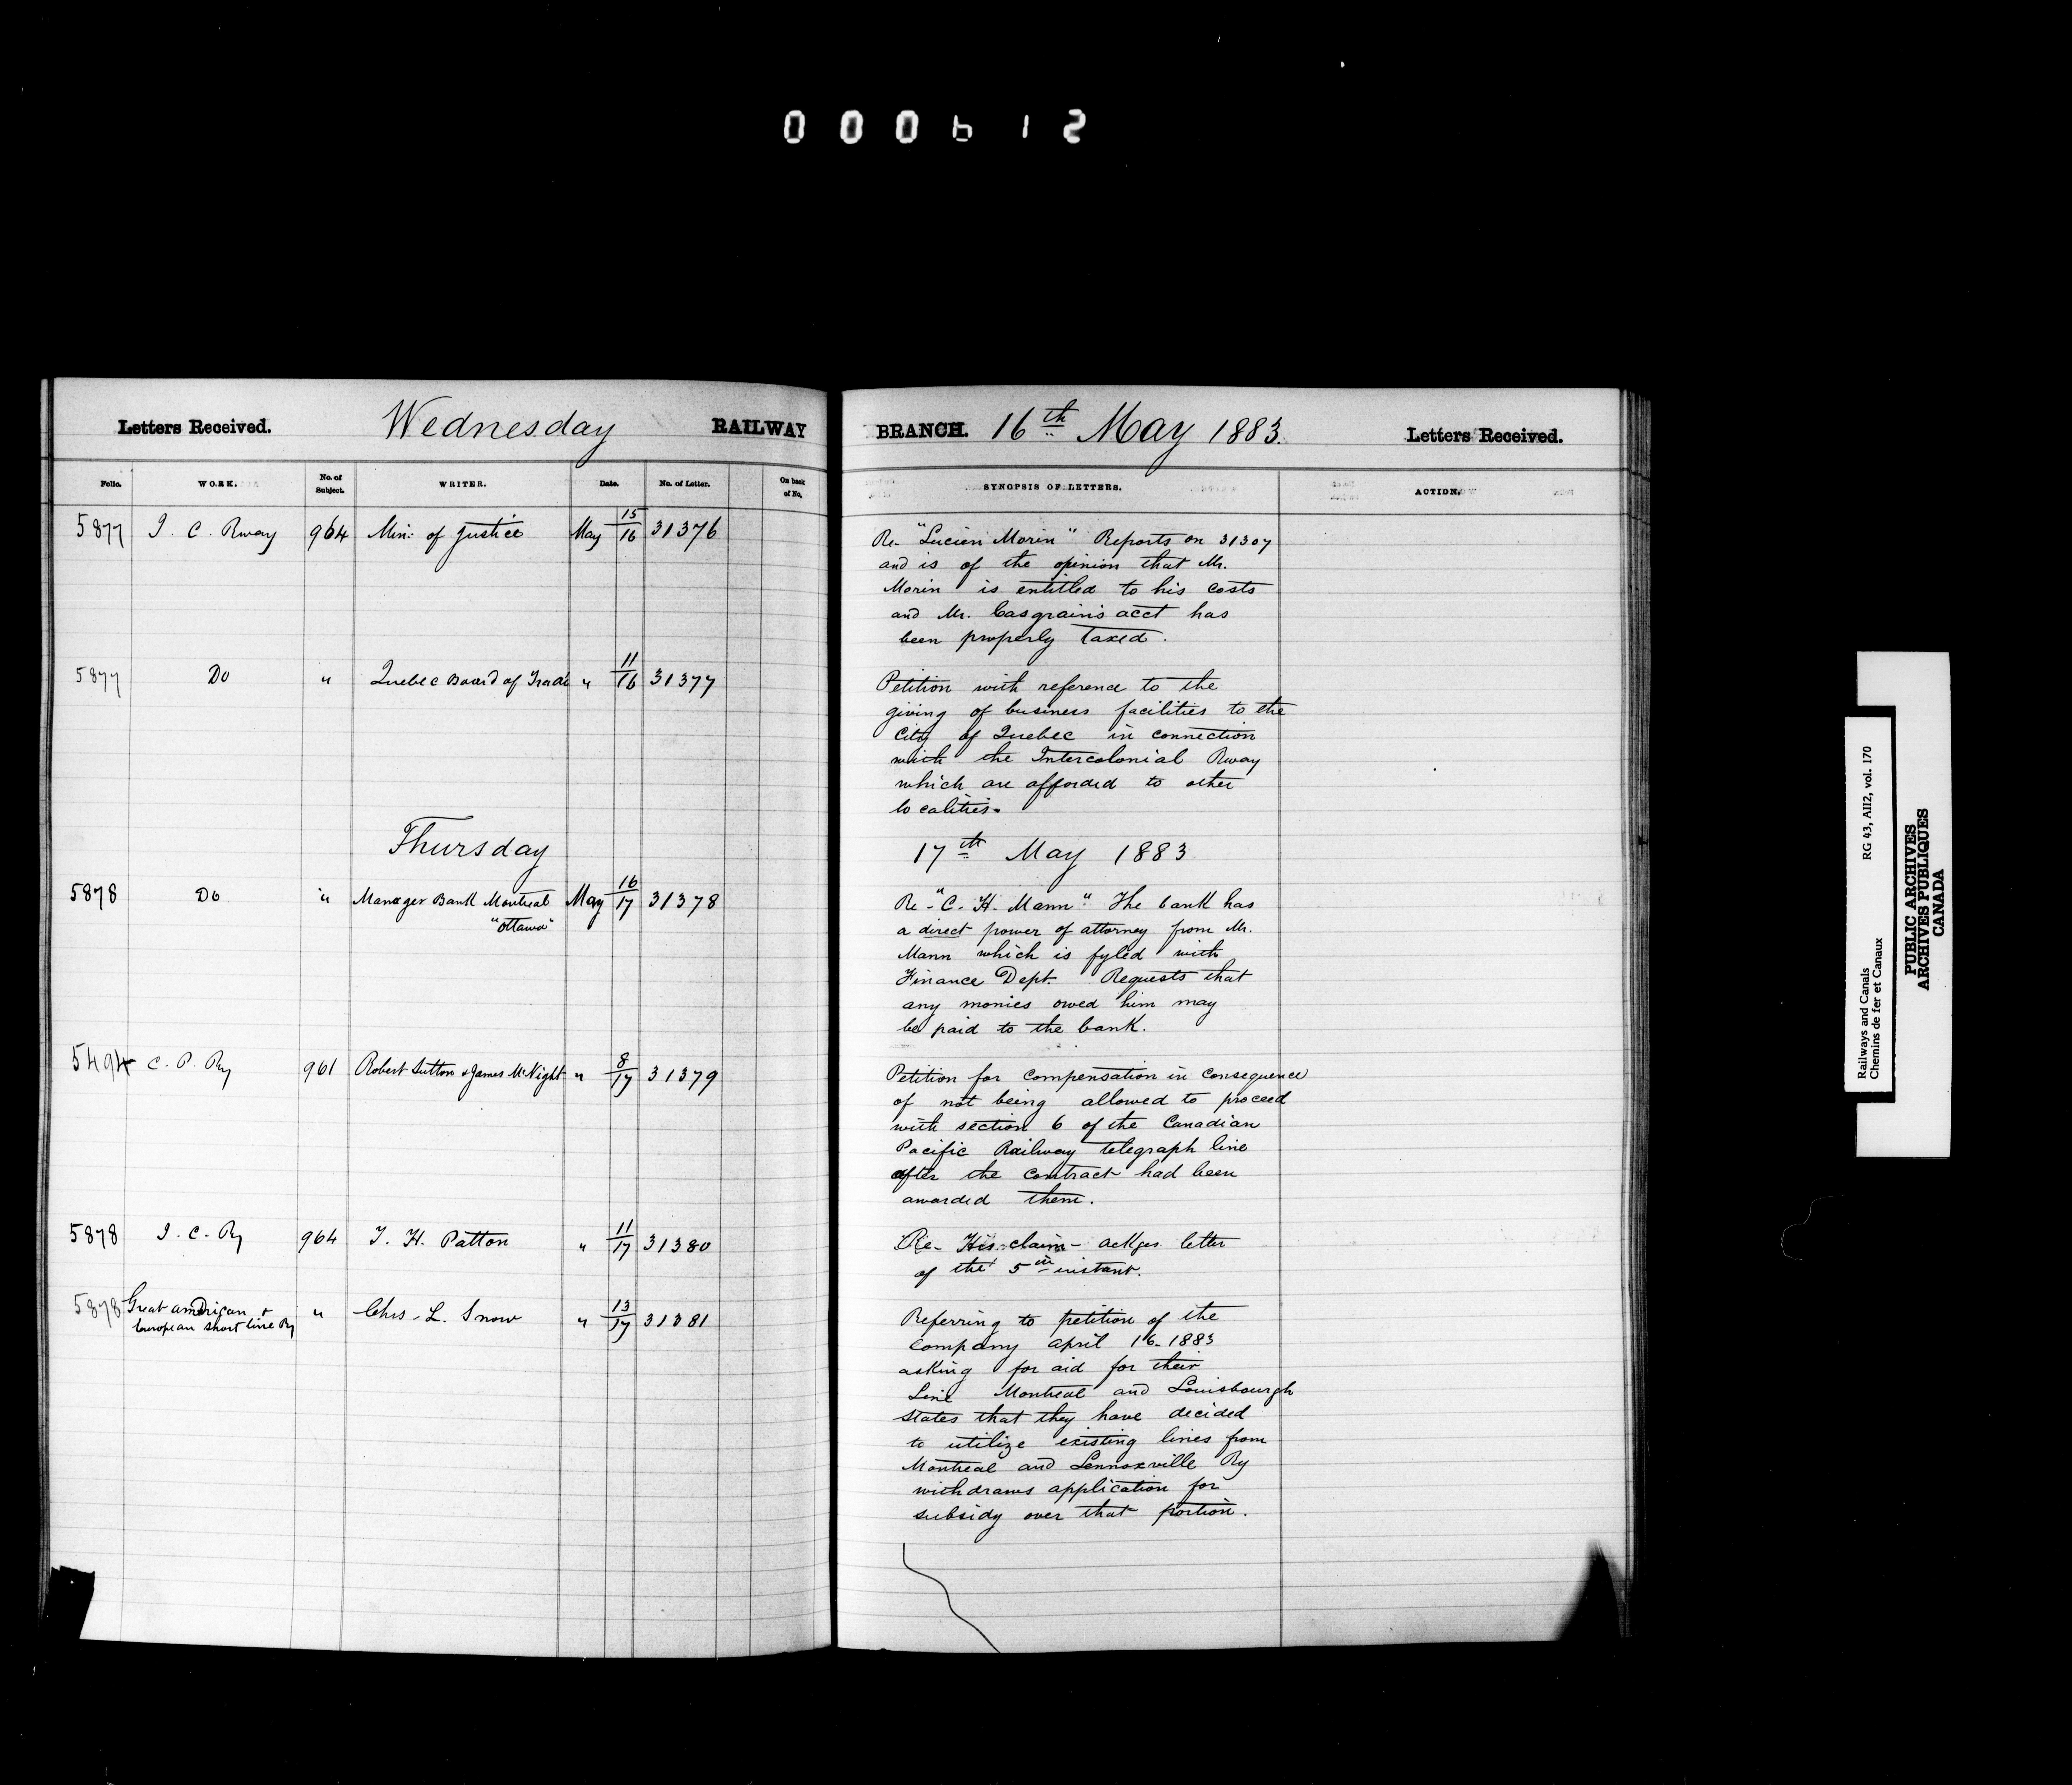 000612
Letters Received. Wednesday RAILWAY
Folio. WORK. No. of Subject. WRITER. Date. No. of Letter. On back of No.
5877 I. C. Rway 964 Min: of Justice May 15/16 31376
5877 Do " Quebec Board of Trade " 11/16 31377
Thursday
5878 Do " Manager Bank Montreal May 16/17 31378
"Ottawa"
5494 C. P. Ry 961 Robert Sutton & James McNight " 8/17 31379
5878 I. C. Ry 964 T. H. Patton " 11/17 31380
5878 Great American & " Chrs. L. Snow " 13/17 31381
European Short line Ry
BRANCH. 16th May 1883. Letters Received.
SYNOPSIS OF LETTERS. ACTION.
Re- "Lucien Morin" Reports on 31307
and is of the opinion that Mr.
Morin is entitled to his costs
and Mr. Casgrain's acct has
been properly taxed.
Petition with reference to the
giving of business facilities to the
City of Quebec in connection
with the Intercolonial Rway
which are afforded to other
localities.
17th May 1883
Re- "C. H. Mann" The bank has
a direct power of attorney from Mr.
Mann which is fyled with
Finance Dept. Requests that
any monies owed him may
be paid to the bank.
Petition for compensation in consequence
of not being allowed to proceed
with section 6 of the Canadian
Pacific Railway telegraph line
after the contract had been
awarded them.
Re- His claim - ackges letter
of the 5th instant.
Referring to petition of the
Company april 16-1883
asking for aid for their
Line Montreal and Louisbourgh
states that they have decided
to utilize existing lines from
Montreal and Lennoxville Ry
withdraws application for
subsidy over that portion.
Railways and Canals RG 43, AII2, vol. 170
Chemins de fer et Canaux
PUBLIC ARCHIVES
ARCHIVES PUBLIQUES
CANADA